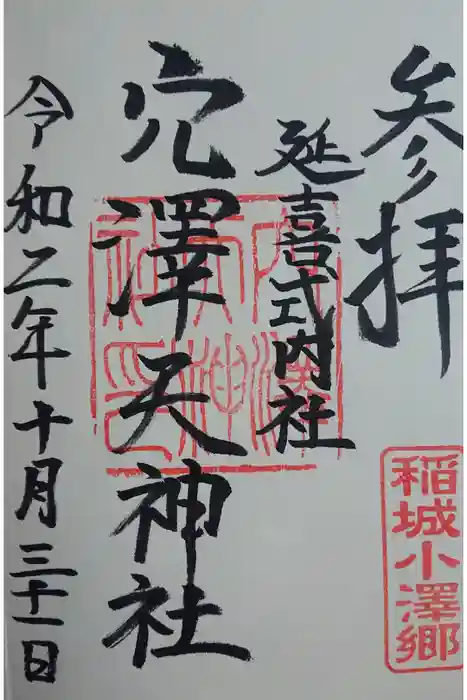 参拝
稲城小澤郷
延喜式内社
穴澤天神社
令和二年十月三十一日